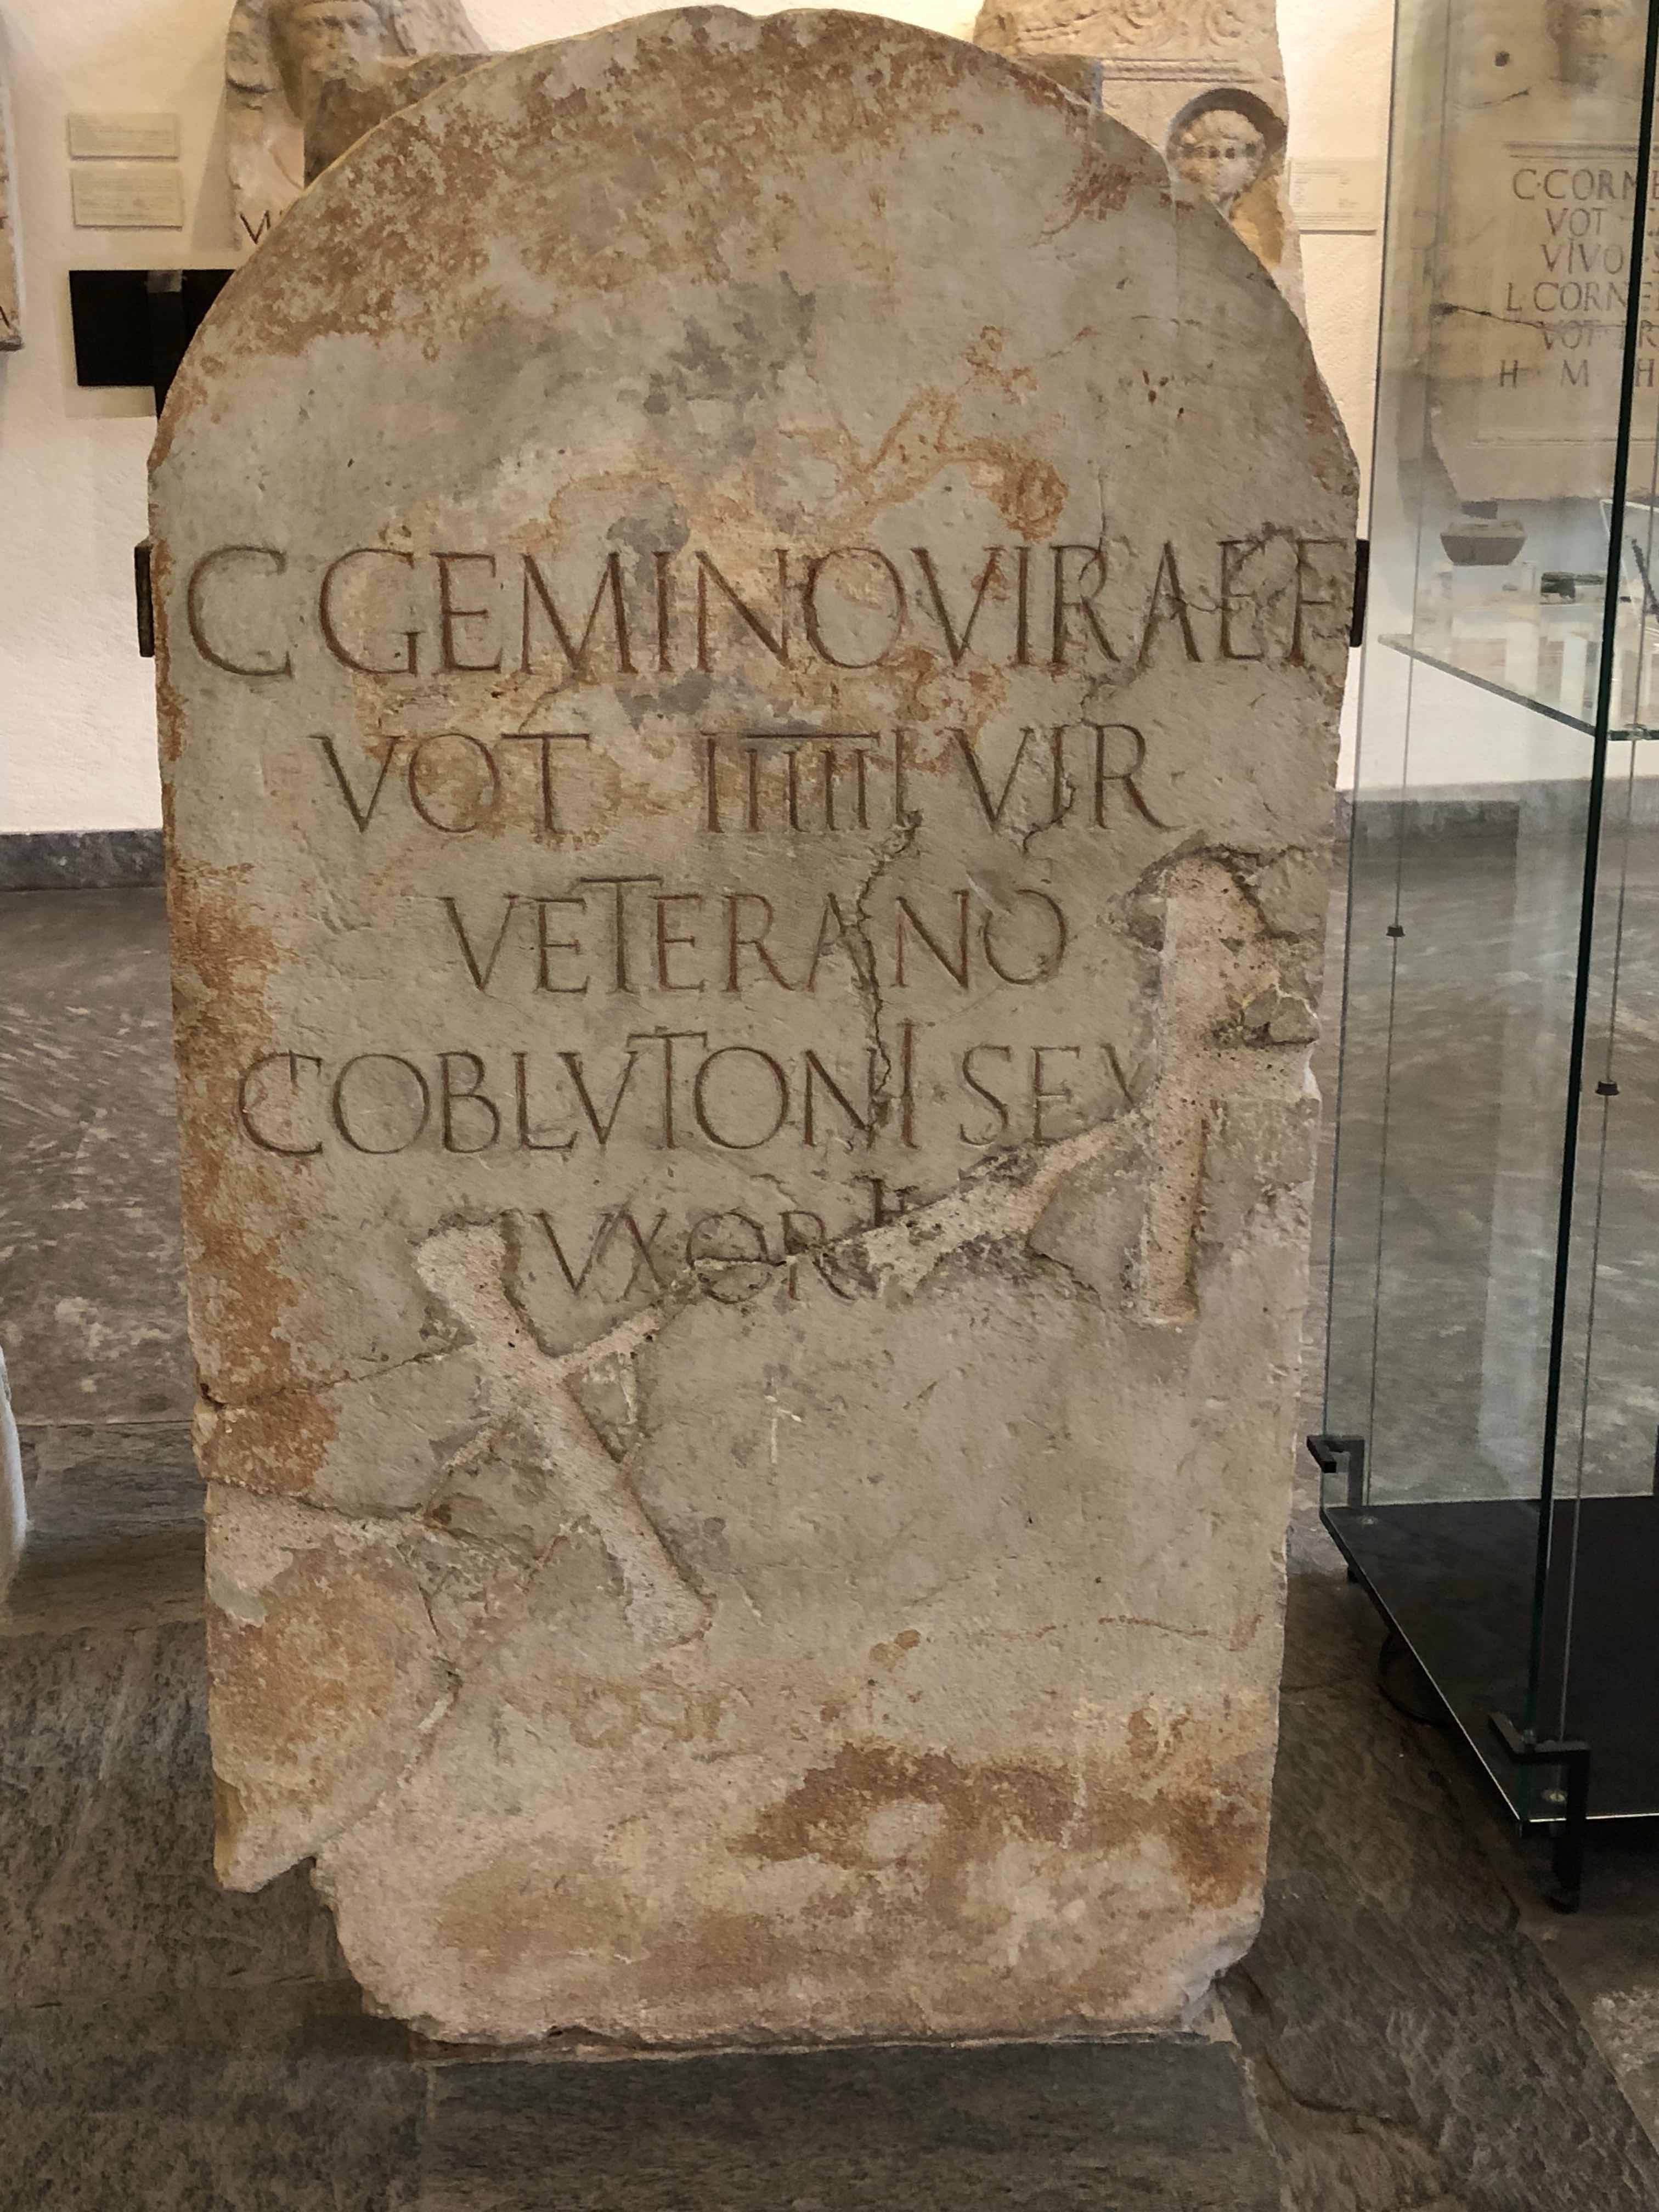 C GEMINO VIRAE F
VOT IIIIII VIR
VETERANO
COBLVTONI SEX
F VXORI
C·CORNE
VOT
VIVO·S
L CORNE
VOT
H M H